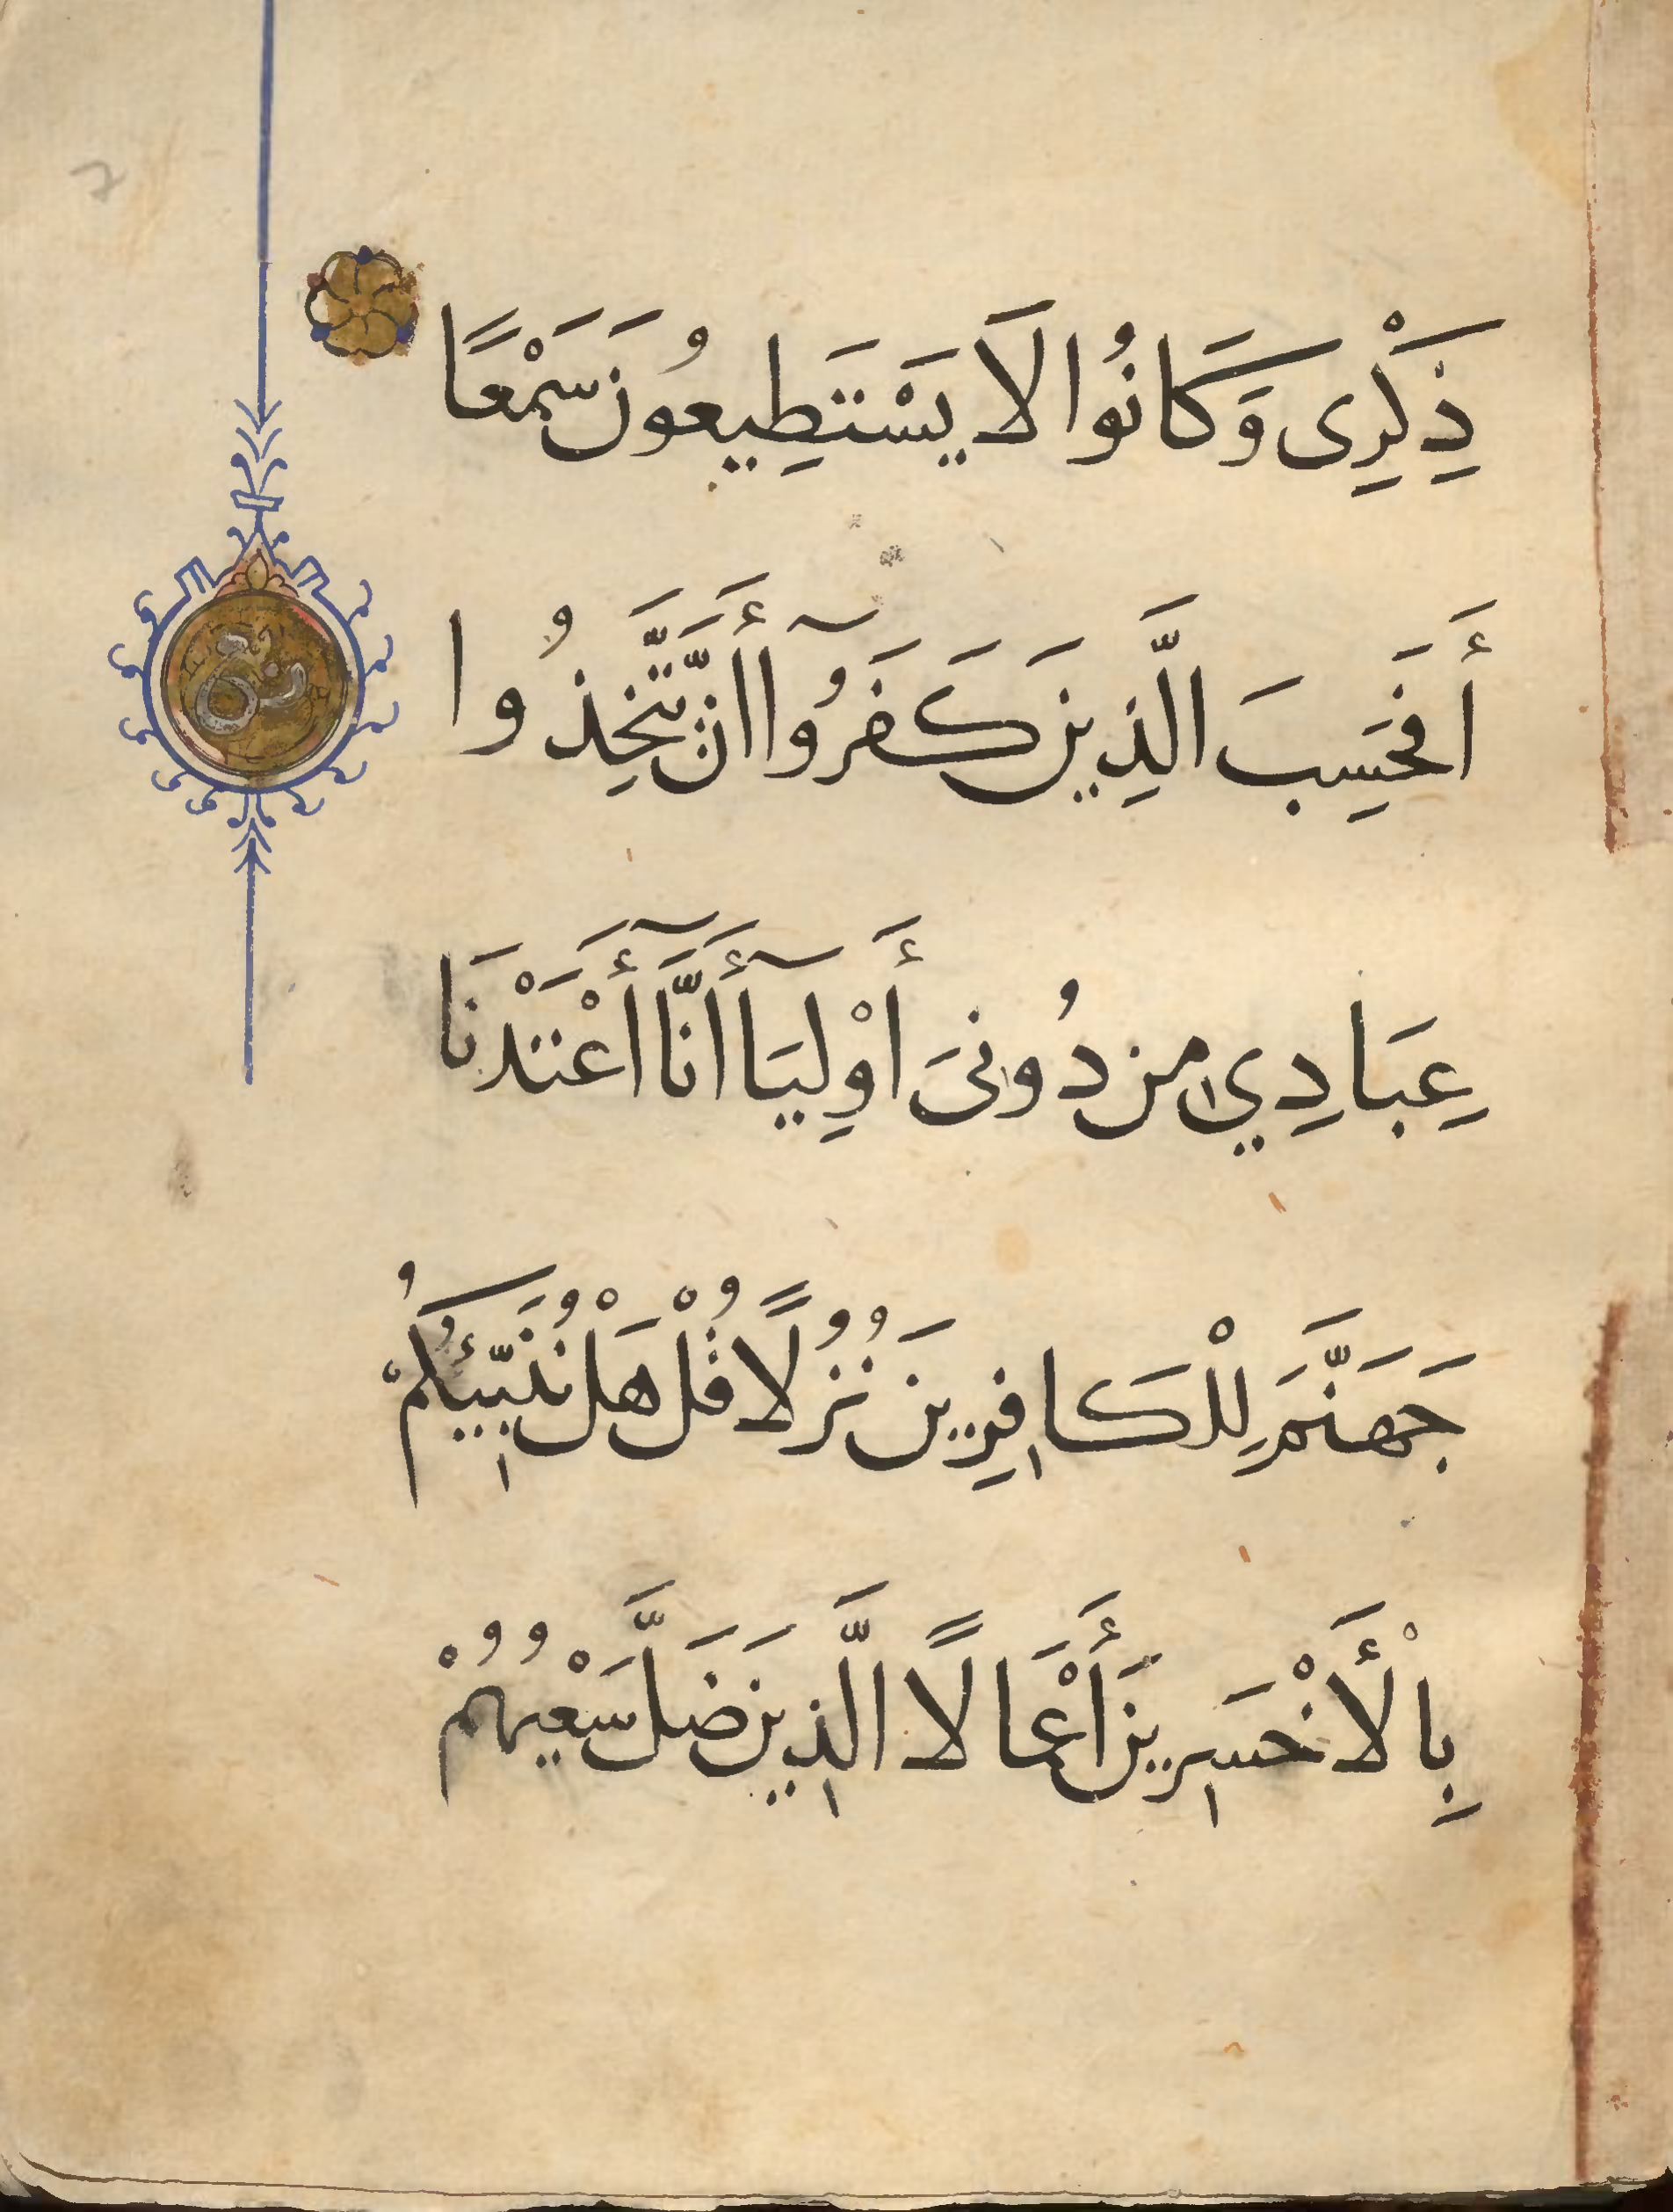 ذِكْرِى وَكَانُوا لَا يَسْتَطِيعُونَ سَمْعًا
أَفَحَسِبَ الَّذِينَ كَفَرُوآ أَنَّ يَّتَّخِذُوا
عِبَادِي مِن دُونِىَ أَوْلِيَآ أَنَّآ أَعْتَدْنَا
جَهَنَّمَ لِلْكَافِرِينَ نُزُلًا قُلْ هَلْ نُنَبِّئُكُمْ
بِالْأَخْسَرِينَ أَعْمَالًا الَّذِينَ ضَلَّ سَعْيُهُمْ